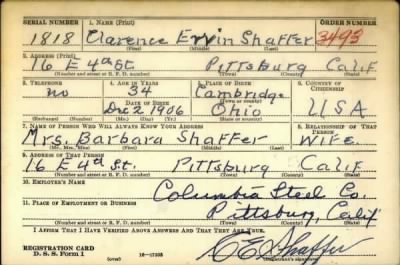 SERIAL NUMBER 1. NAME (Print) ORDER NUMBER
1818 Clarence Ervin Shaffer 3493
(First) (Middle) (Last)
2. ADDRESS (Print)
16 E 4th St. Pittsburg Calif
(Number and street or R. F. D. number) (Town) (County) (State)
3. TELEPHONE 4. AGE IN YEARS 5. PLACE OF BIRTH 6. COUNTRY OF CITIZENSHIP
no 34 Cambridge
DATE OF BIRTH (Town or county)
Dec 2 1906 Ohio USA
(Mo.) (Day) (Yr.) (State or country)
7. NAME OF PERSON WHO WILL ALWAYS KNOW YOUR ADDRESS 8. RELATIONSHIP OF THAT PERSON
Mrs. Barbara Shaffer Wife.
(Mr., Mrs., Miss) (First) (Middle) (Last)
9. ADDRESS OF THAT PERSON
16 E 4th St. Pittsburg Calif
(Number and street or R. F. D. number) (Town) (County) (State)
10. EMPLOYER'S NAME
Columbia Steel Co.
11. PLACE OF EMPLOYMENT OR BUSINESS
Pittsburg, Calif
(Number and street or R. F. D. number) (Town) (County) (State)
I AFFIRM THAT I HAVE VERIFIED ABOVE ANSWERS AND THAT THEY ARE TRUE.
REGISTRATION CARD
D. S. S. Form 1 (over) 16—17105 C E Shaffer
(Registrant's signature)